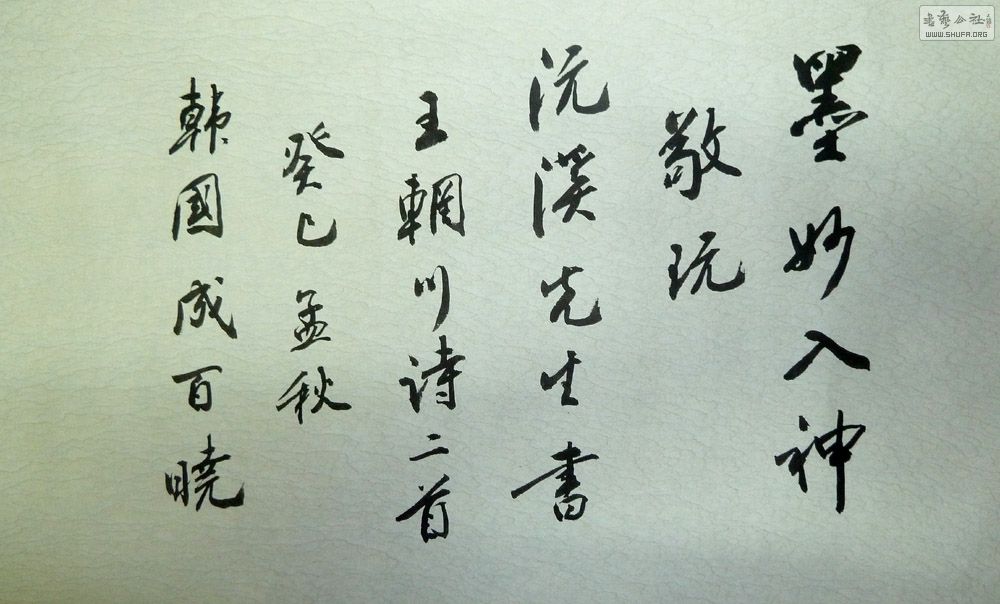 墨妙入神
敬玩
沅溪先生书
王輞川诗二首
癸巳孟秋
韩國成百曉
书艺公社
WWW.SHUFA.ORG